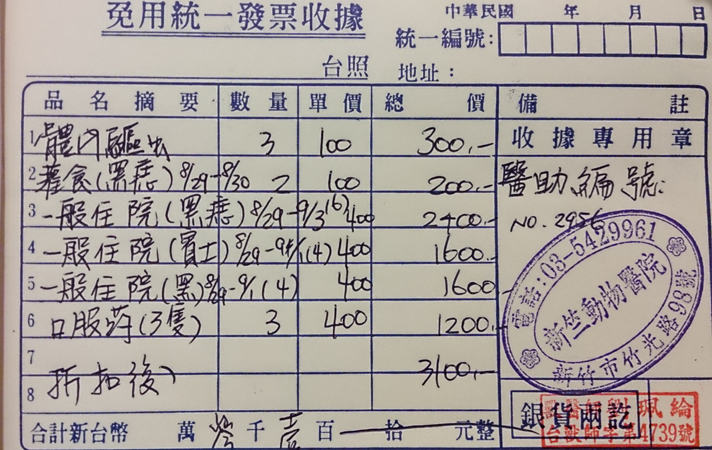 免用統一發票收據
中華民國 年 月 日
統一編號：
台照 地址：
品名摘要 數量 單價 總價 備註
收據專用章
1 體內驅虫 3 100 300.-
2 (黑痣) 8/29-8/30 2 100 200.-
3 一般住院(黑痣) 8/29-9/3 (6) 400 2400.-
4 一般住院(賓士) 8/29-9/1 (4) 400 1600.-
5 一般住院(黑) 8/29-9/1 (4) 400 1600.-
6 口服葯(3隻) 3 400 1200.-
7
8 折扣後 3100.-
醫助編號:
NO. 2956
電話:03-5429961
新竺動物醫院
新竹市竹光路98號
銀貨兩訖
珮綸
台獸師字第4739號
合計新台幣 萬 千壹百 拾 元整